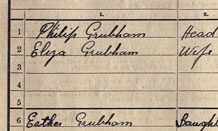 1. 2.
1 Philip Grubham Head
2 Eliza Grubham Wife
3
4
5
6 Esther Grubham Daught